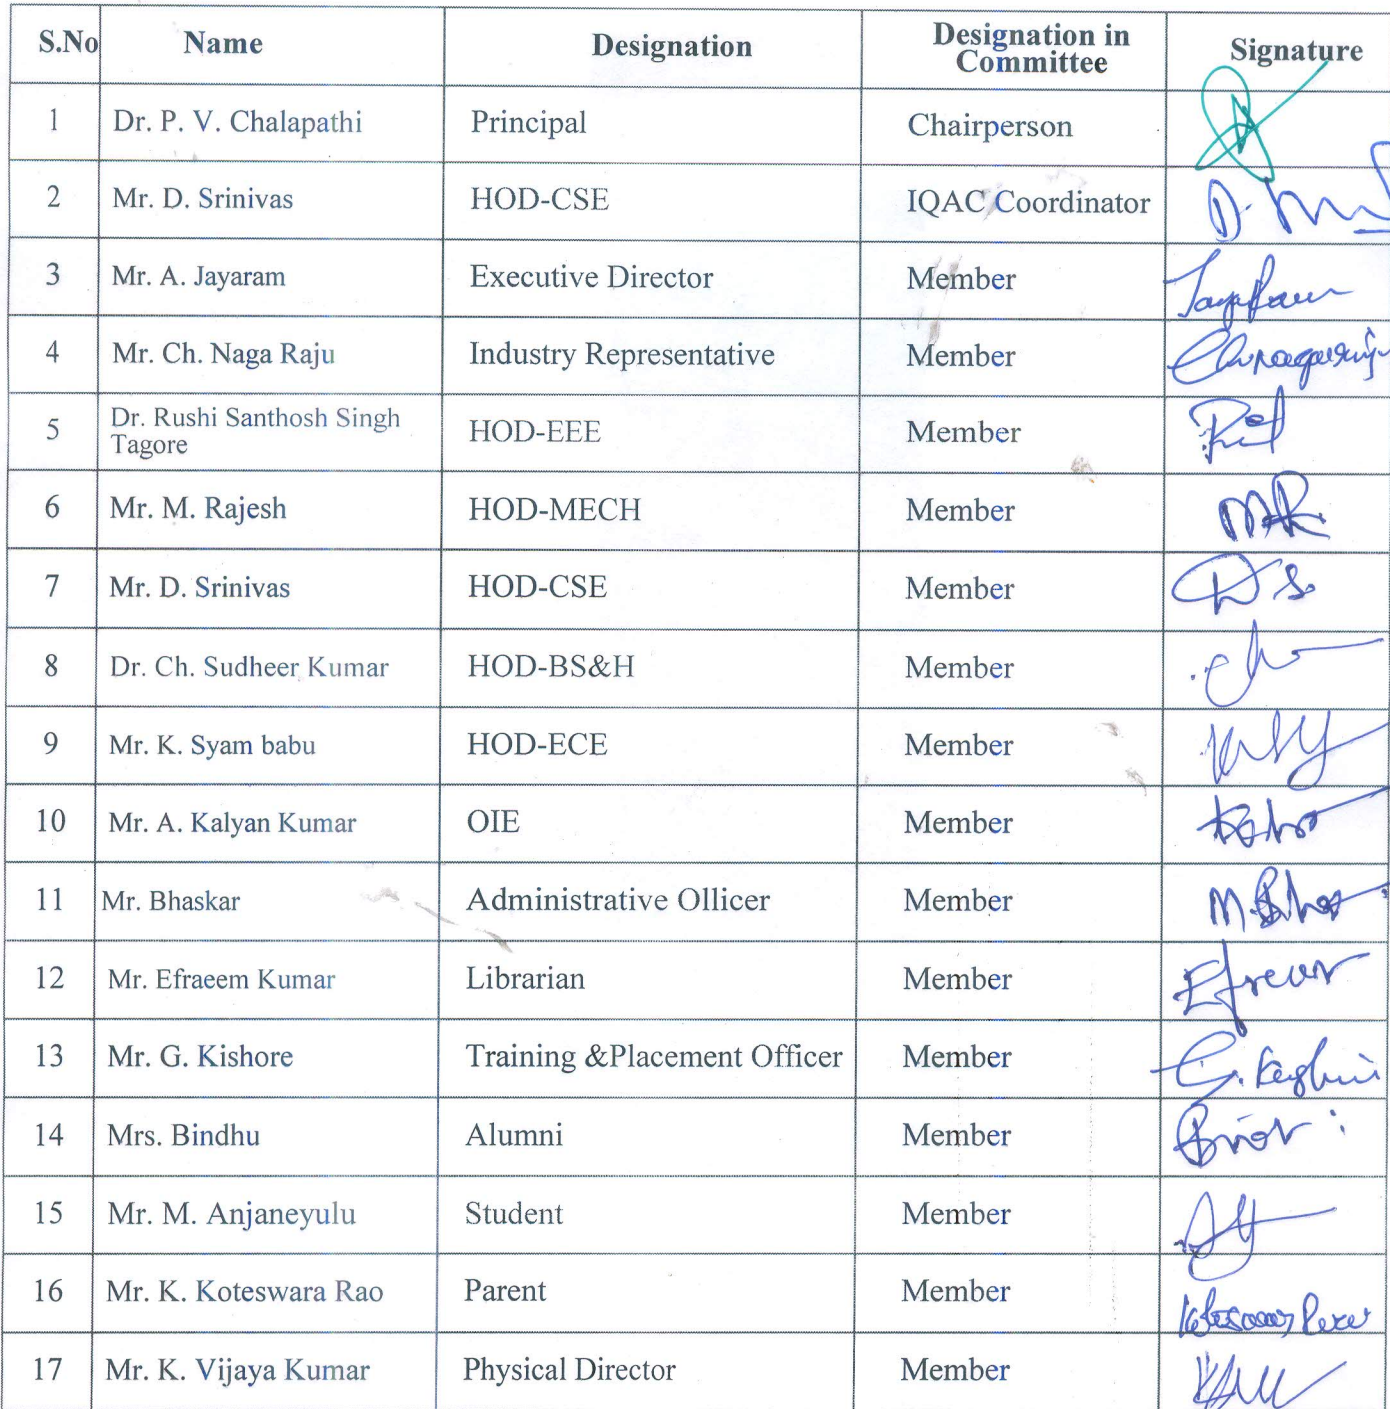 S.No Name Designation Designation in Committee Signature
1 Dr. P. V. Chalapathi Principal Chairperson
2 Mr. D. Srinivas HOD-CSE IQAC Coordinator
3 Mr. A. Jayaram Executive Director Member
4 Mr. Ch. Naga Raju Industry Representative Member
5 Dr. Rushi Santhosh Singh Tagore HOD-EEE Member
6 Mr. M. Rajesh HOD-MECH Member
7 Mr. D. Srinivas HOD-CSE Member
8 Dr. Ch. Sudheer Kumar HOD-BS&H Member
9 Mr. K. Syam babu HOD-ECE Member
10 Mr. A. Kalyan Kumar OIE Member
11 Mr. Bhaskar Administrative Ollicer Member
12 Mr. Efraeem Kumar Librarian Member
13 Mr. G. Kishore Training &Placement Officer Member
14 Mrs. Bindhu Alumni Member
15 Mr. M. Anjaneyulu Student Member
16 Mr. K. Koteswara Rao Parent Member
17 Mr. K. Vijaya Kumar Physical Director Member